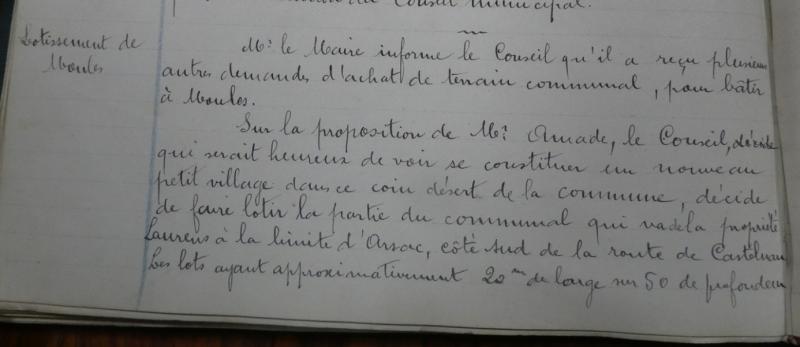 du Conseil Municipal.
Lotissement de
Moulès
Mr. le Maire informe le Conseil qu'il a reçu plusieurs
autres demandes d'achat de terrain communal, pour bâtir
à Moulès.
Sur la proposition de Mr. Amade, le Conseil, décide
qui serait heureux de voir se constituer un nouveau
petit village dans ce coin désert de la commune, décide
de faire lotir la partie du communal qui va de la propriété
Laurens à la limite d'Arsac, côté sud de la route de Castelnau
Les lots ayant approximativement 20 m de large sur 50 de profondeur